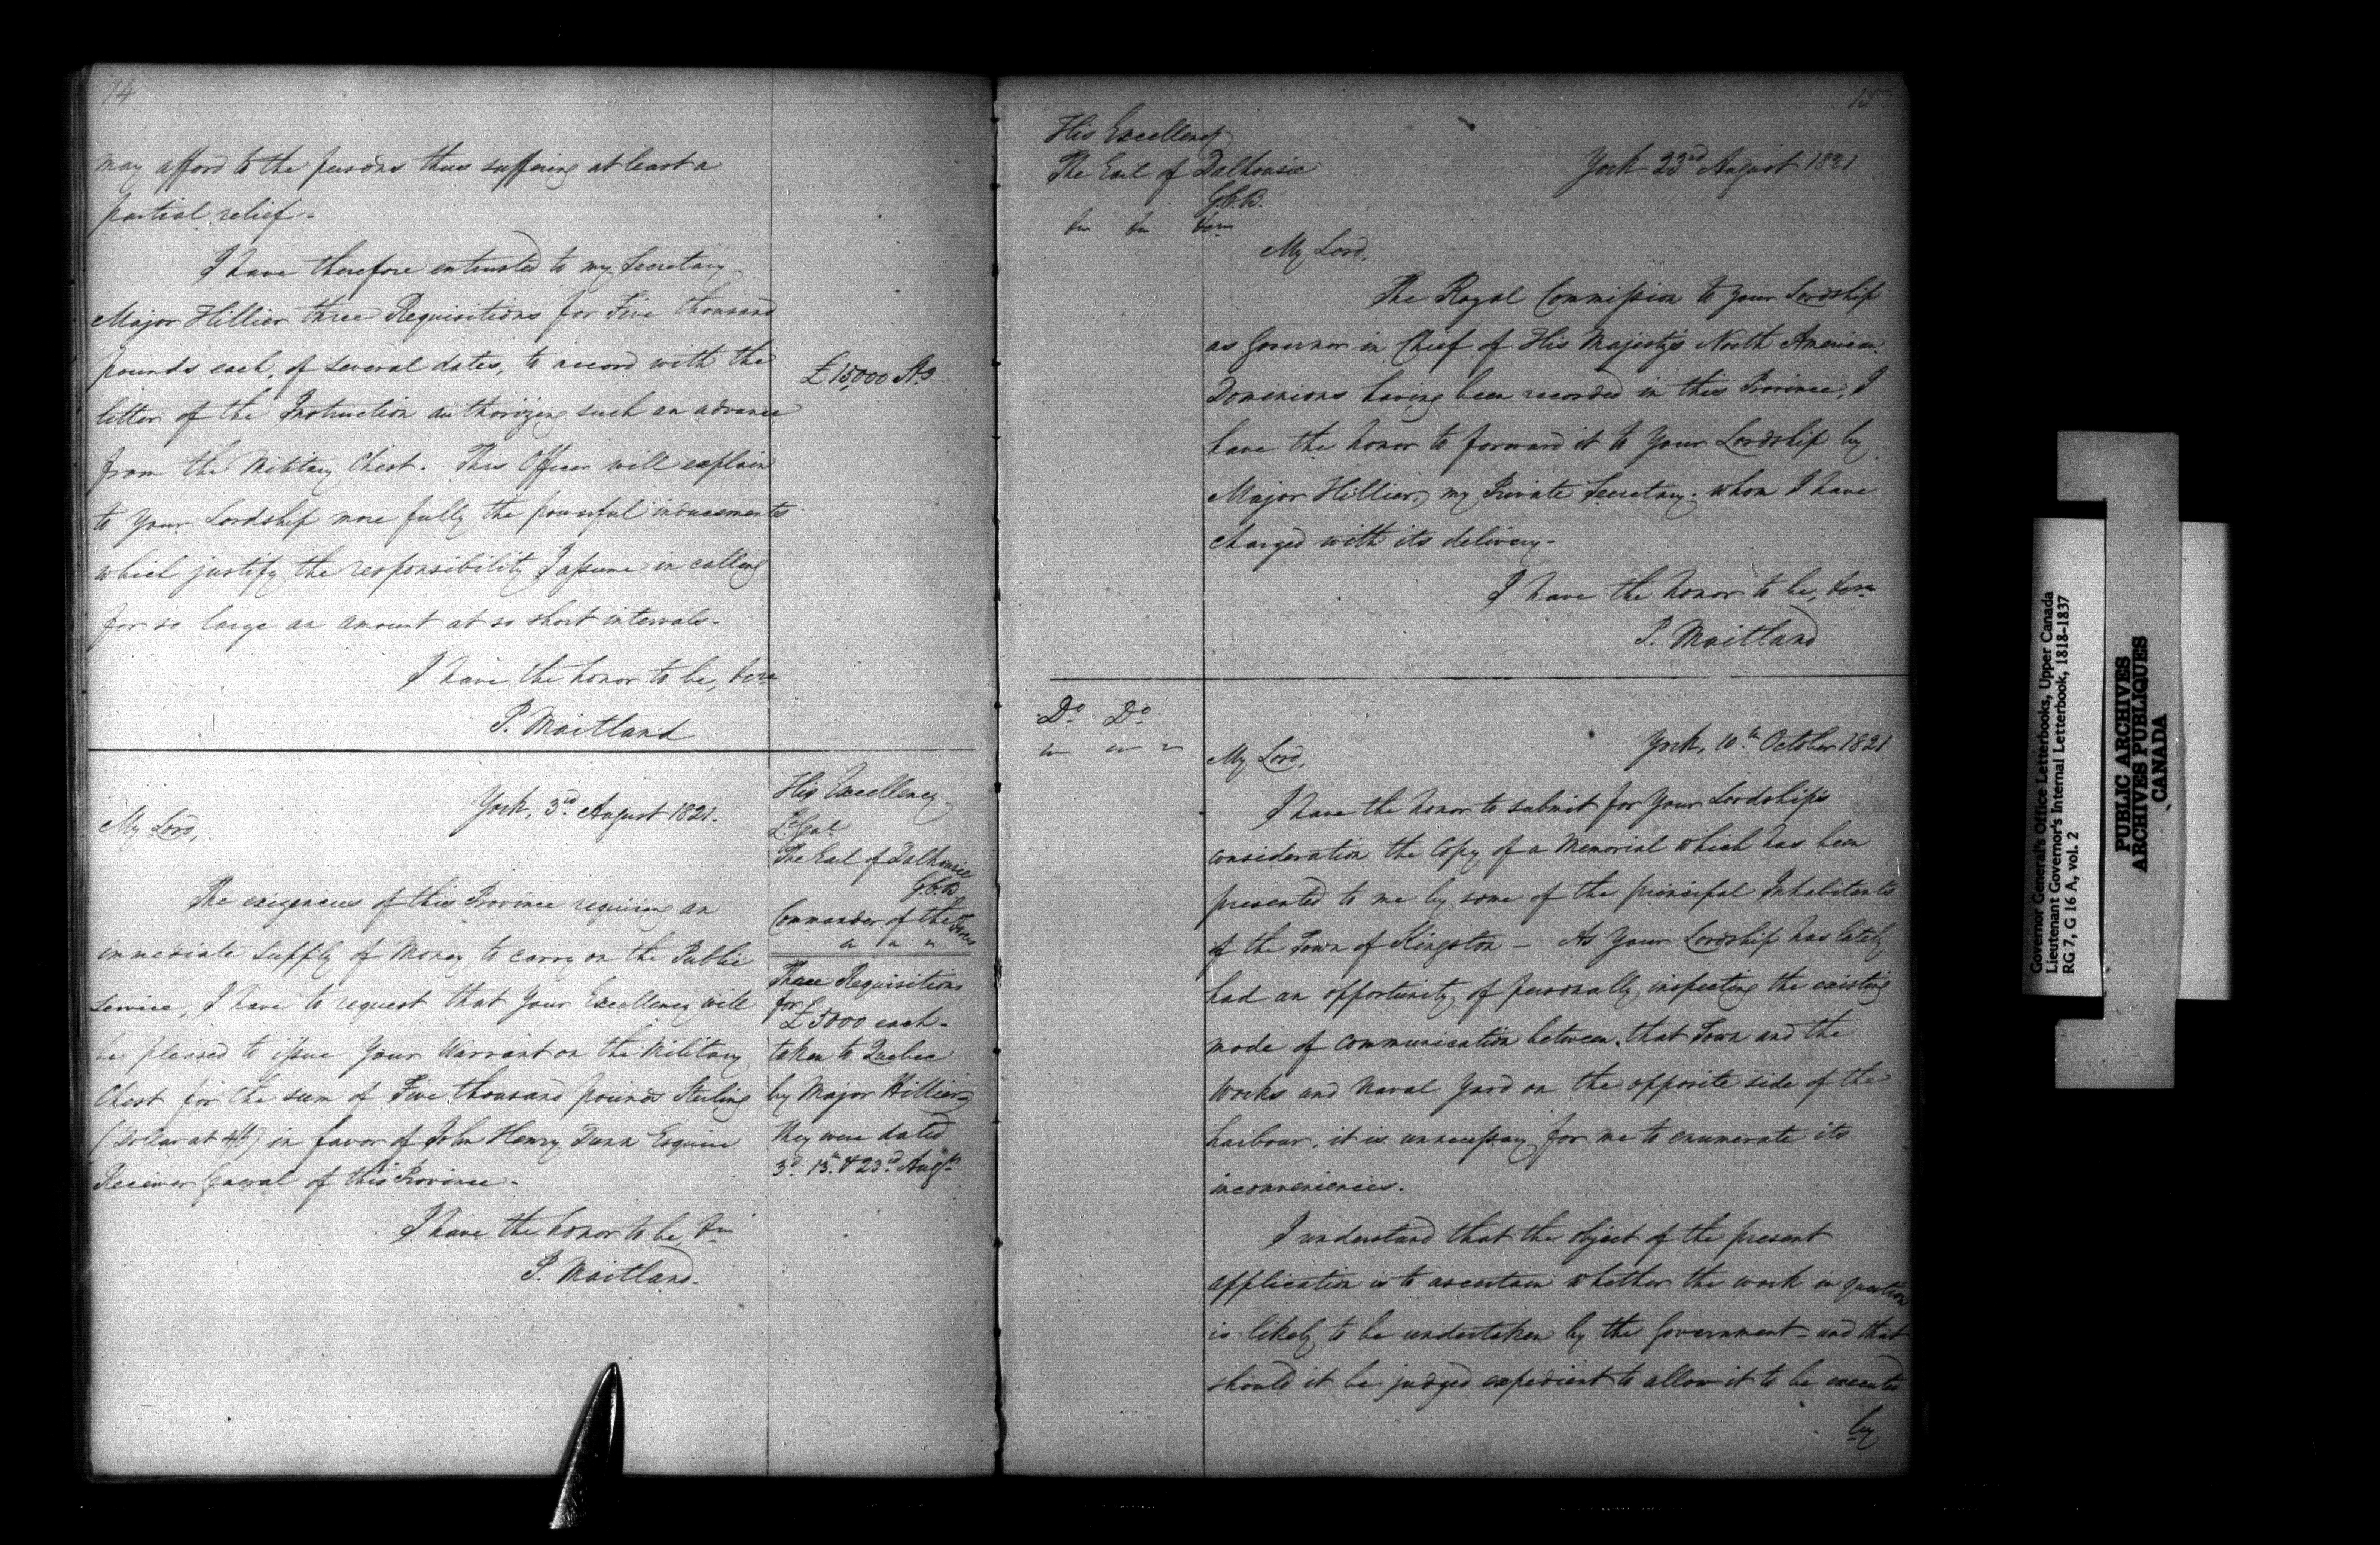 14
may afford to the persons thus suffering at least a
partial relief -
I have therefore entrusted to my Secretary
Major Hillier three Requisitions for Five thousand
pounds each, of several dates, to accord with the
letter of the Instruction authorizing such an advance
from the Military Chest. This Officer will explain
to Your Lordship more fully the powerful inducements
which justify the responsibility I assume in calling
for so large an amount at so short intervals -
I have the honor to be,
P. Maitland
£15,000 Stg
York, 3rd August 1821.
My Lord,
The exigencies of this Province requiring an
immediate Supply of Money to carry on the Public
Service, I have to request that Your Excellency will
be pleased to issue Your Warrant on the Military
Chest for the sum of Five thousand pounds Sterling
(Dollar at 4/6) in favor of John Henry Dunn Esquire
Receiver General of this Province -
I have the honor to be,
P. Maitland.
His Excellency
Lt Genl
The Earl of Dalhousie
G.C.B
Commander of the Forces
Three Requisitions
for
£5000 each -
taken to Quebec
by Major Hillier
they were dated
3d. 13th & 23rd Augt
15
His Excellency
The Earl of Dalhousie
G.C.B.
York 23rd August 1821
My Lord,
The Royal Commission to Your Lordship
as Governor in Chief of His Majesty's North American
Dominions having been recorded in this Province, I
have the honor to forward it to Your Lordship by
Major Hillier, my Private Secretary. whom I have
charged with its delivery -
I have the honor to be,
P. Maitland
Do Do
York, 10th October 1821
My Lord,
I have the honor to submit for Your Lordship's
consideration the Copy of a Memorial which has been
presented to me by some of the principal Inhabitants
of the Town of Kingston - As Your Lordship has lately
had an opportunity of personally inspecting the existing
mode of communication between that Town and the
Works and Naval Yard on the opposite side of the
harbour, it is unnecessary for me to enumerate its
inconveniences.
I understand that the object of the present
application is to ascertain whether the work in question
is likely to be undertaken by the Government - and that
should it be judged expedient to allow it to be executed
by
Governor General's Office Letterbooks, Upper Canada
Lieutenant Governor's Internal Letterbook, 1818-1837
RG 7, G 16 A, vol. 2
PUBLIC ARCHIVES
ARCHIVES PUBLIQUES
CANADA